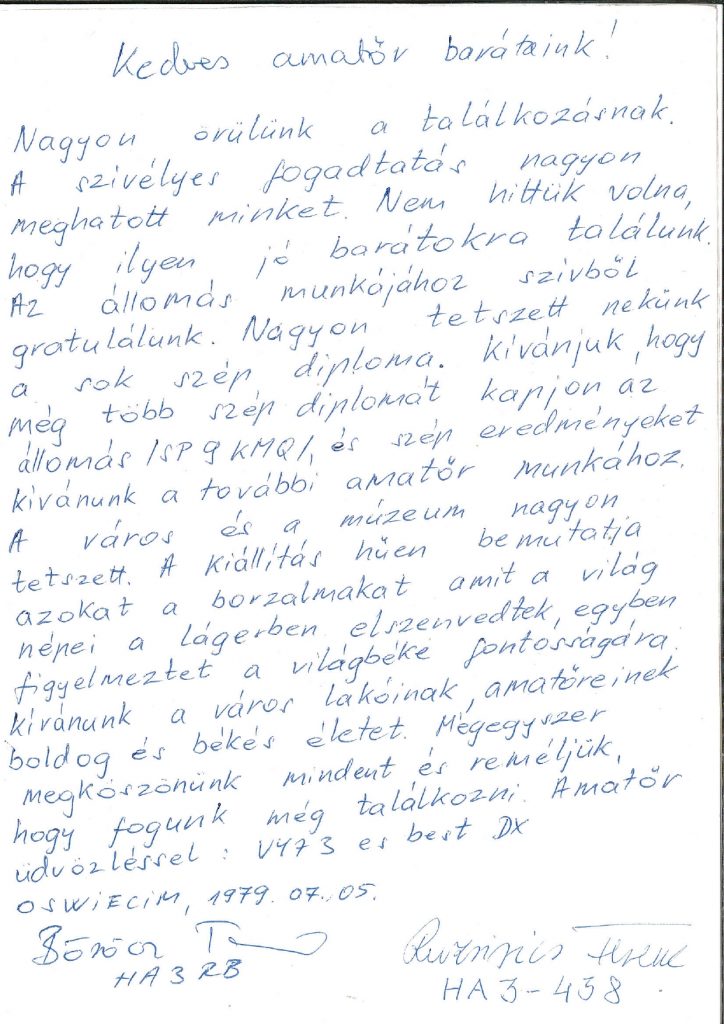 Kedves amatőr barátaink!
Nagyon örülünk a találkozásnak.
A szivélyes fogadtatás nagyon
meghatott minket. Nem hittük volna,
hogy ilyen jó barátokra találunk.
Az állomás munkájához szivből
gratulálunk. Nagyon tetszett nekünk
a sok szép diploma. Kívánjuk, hogy
még több szép diplomát kapjon az
állomás /SP9KMQ/, és szép eredményeket
kívánunk a további amatőr munkához.
A város és a múzeum nagyon
tetszett. A kiállítás hűen bemutatja
azokat a borzalmakat amit a világ
népei a lágerben elszenvedtek, egyben
figyelmeztet a világbéke fontosságára.
Kívánunk a város lakóinak, amatőreinek
boldog és békés életet. Mégegyszer
megköszönünk mindent és reméljük,
hogy fogunk még találkozni. Amatőr
üdvözléssel: VY73 es best DX
OSWIECIM, 1979. 07. 05.
HA3RB
Ferenc
HA3-438